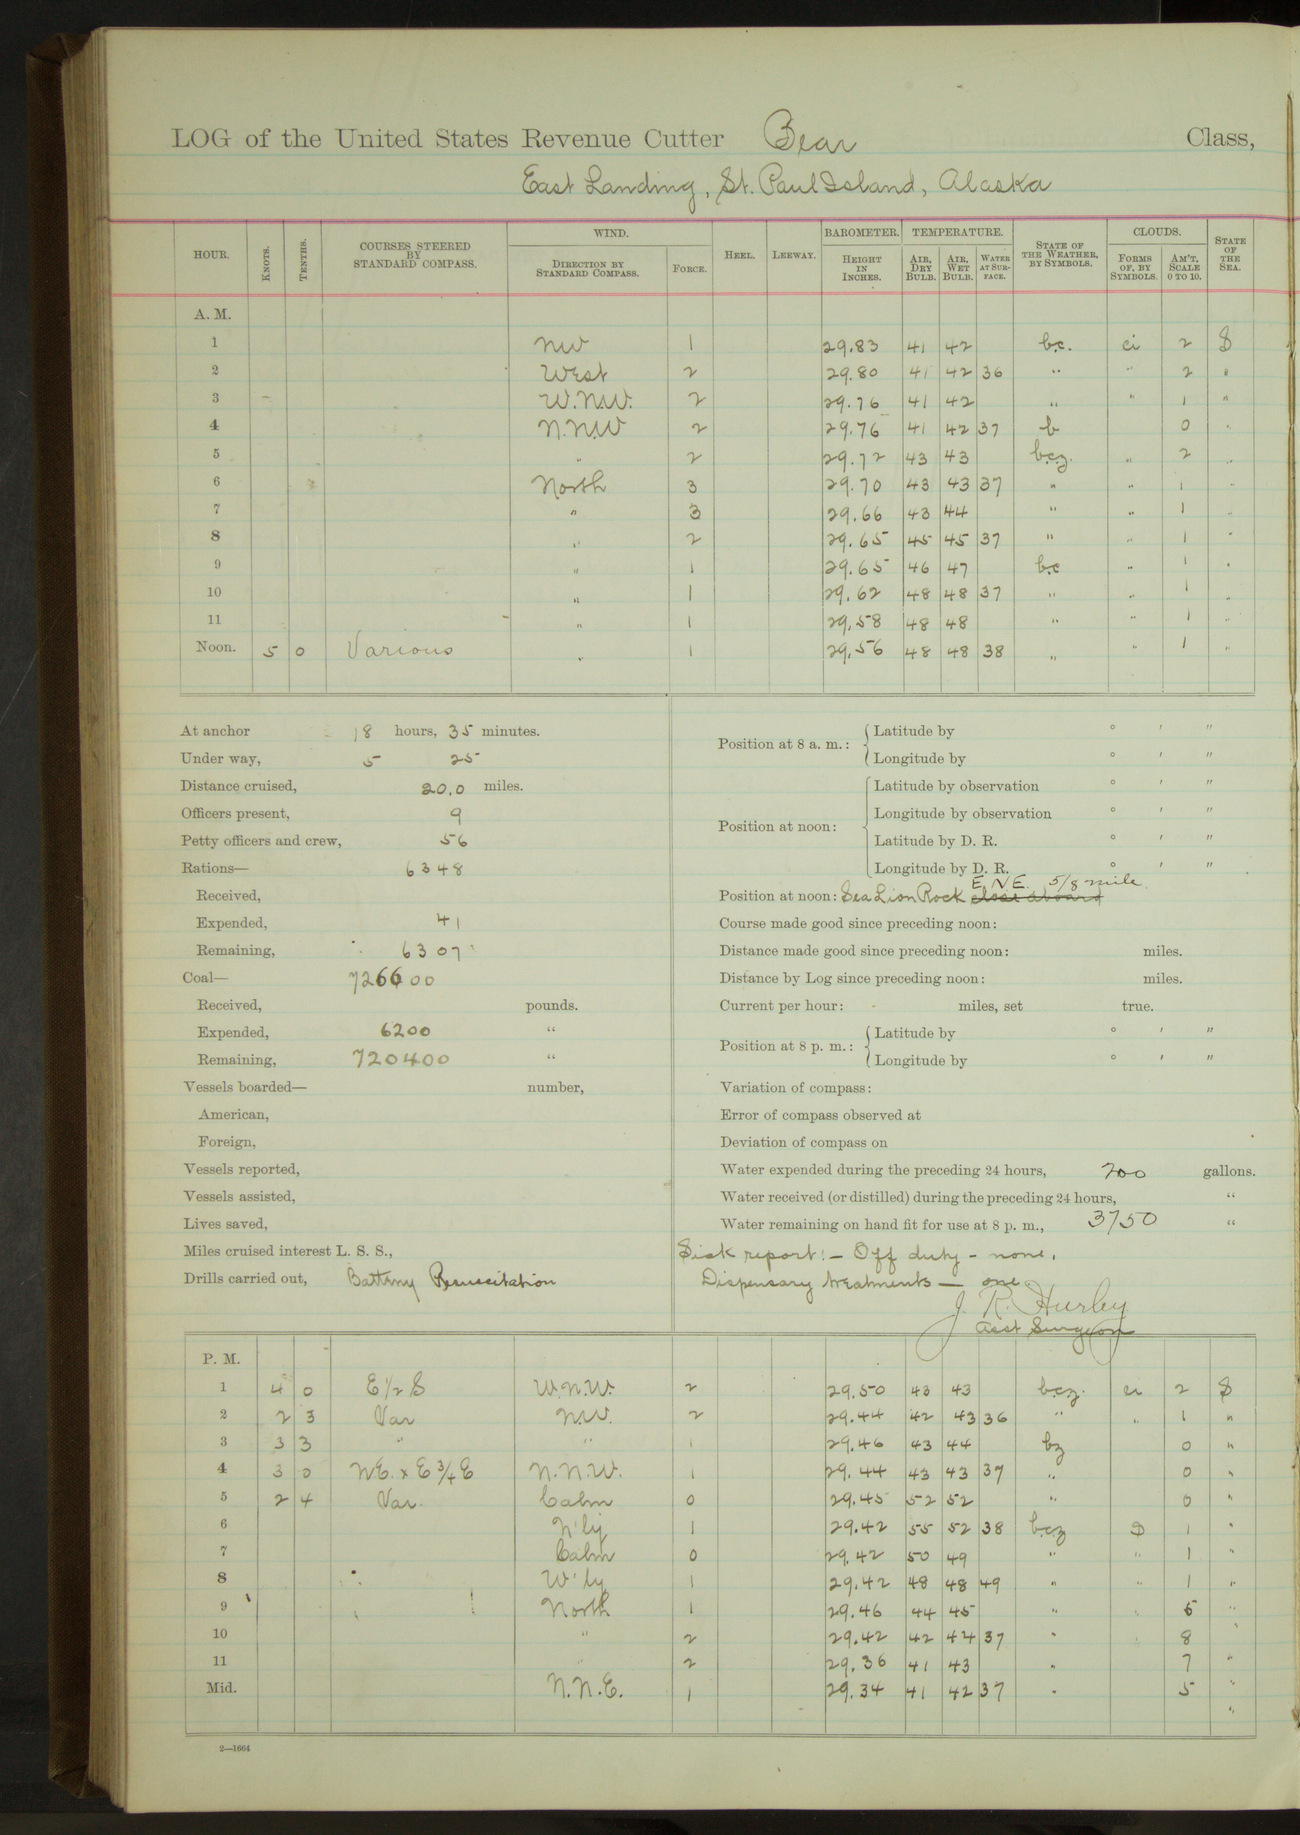 LOG of the United States Revenue Cutter Bear Class,
East Landing, St. Paul Island, Alaska
HOUR. KNOTS. TENTHS. COURSES STEERED BY STANDARD COMPASS. WIND. DIRECTION BY STANDARD COMPASS. FORCE. HEEL. LEEWAY. BAROMETER. HEIGHT IN INCHES. TEMPERATURE. AIR, DRY BULB. AIR, WET BULB. WATER AT SURFACE. STATE OF THE WEATHER, BY SYMBOLS. CLOUDS. FORMS OF, BY SYMBOLS. AM'T, SCALE 0 TO 10. STATE OF THE SEA.
A. M.
1 NW 1 29.83 41 42 b.c. ci 2 S
2 West 2 29.80 41 42 36 " " 2 "
3 W.N.W. 2 29.76 41 42 " " 1 "
4 N.N.W 2 29.76 41 42 37 b 0 "
5 " 2 29.72 43 43 b.c.z. " 2 "
6 North 3 29.70 43 43 37 " " 1 "
7 " 3 29.66 43 44 " " 1 "
8 " 2 29.65 45 45 37 " " 1 "
9 " 1 29.65 46 47 b.c " 1 "
10 " 1 29.62 48 48 37 " " 1 "
11 " 1 29.58 48 48 " " 1 "
Noon. 5 0 Various " 1 29.56 48 48 38 " " 1 "
At anchor 18 hours, 35 minutes.
Under way, 5 25
Distance cruised, 20.0 miles.
Officers present, 9
Petty officers and crew, 56
Rations— 6348
Received,
Expended, 41
Remaining, 6307
Coal— 726600
Received, pounds.
Expended, 6200 "
Remaining, 720400 "
Vessels boarded— number,
American,
Foreign,
Vessels reported,
Vessels assisted,
Lives saved,
Miles cruised interest L. S. S.,
Drills carried out, Battery Resuscitation
Position at 8 a. m.: Latitude by ° ′ ″
Longitude by ° ′ ″
Position at noon: Latitude by observation ° ′ ″
Longitude by observation ° ′ ″
Latitude by D. R. ° ′ ″
Longitude by D. R. ° ′ ″
E. N E. 5/8 mile
Position at noon: Sea Lion Rock close aboard
Course made good since preceding noon:
Distance made good since preceding noon: miles.
Distance by Log since preceding noon: miles.
Current per hour: miles, set true.
Position at 8 p. m.: Latitude by ° ′ ″
Longitude by ° ′ ″
Variation of compass:
Error of compass observed at
Deviation of compass on
Water expended during the preceding 24 hours, 700 gallons.
Water received (or distilled) during the preceding 24 hours, "
Water remaining on hand fit for use at 8 p. m., 3750 "
Sick report:— Off duty – none.
Dispensary treatments — one
J. R. Hurley
Asst Surgeon
P. M.
1 4 0 E ½ S W.N.W. 2 29.50 43 43 b.c.z. ci 2 S
2 2 3 Var N.W. 2 29.44 42 43 36 " " 1 "
3 3 3 " " 1 29.46 43 44 bz 0 "
4 3 0 NE. x E ¾ E N.N.W. 1 29.44 43 43 37 " 0 "
5 2 4 Var. Calm 0 29.45 52 52 " 0 "
6 N'ly 1 29.42 55 52 38 b.c.z 1 "
7 Calm 0 29.42 50 49 " " 1 "
8 W'ly 1 29.42 48 48 49 " " 1 "
9 North 1 29.46 44 45 " " 5 "
10 " 2 29.42 42 44 37 " 8 "
11 " 2 29.36 41 43 " 7 "
Mid. N.N.E. 1 29.34 41 42 37 " 5 "
"
2—1664